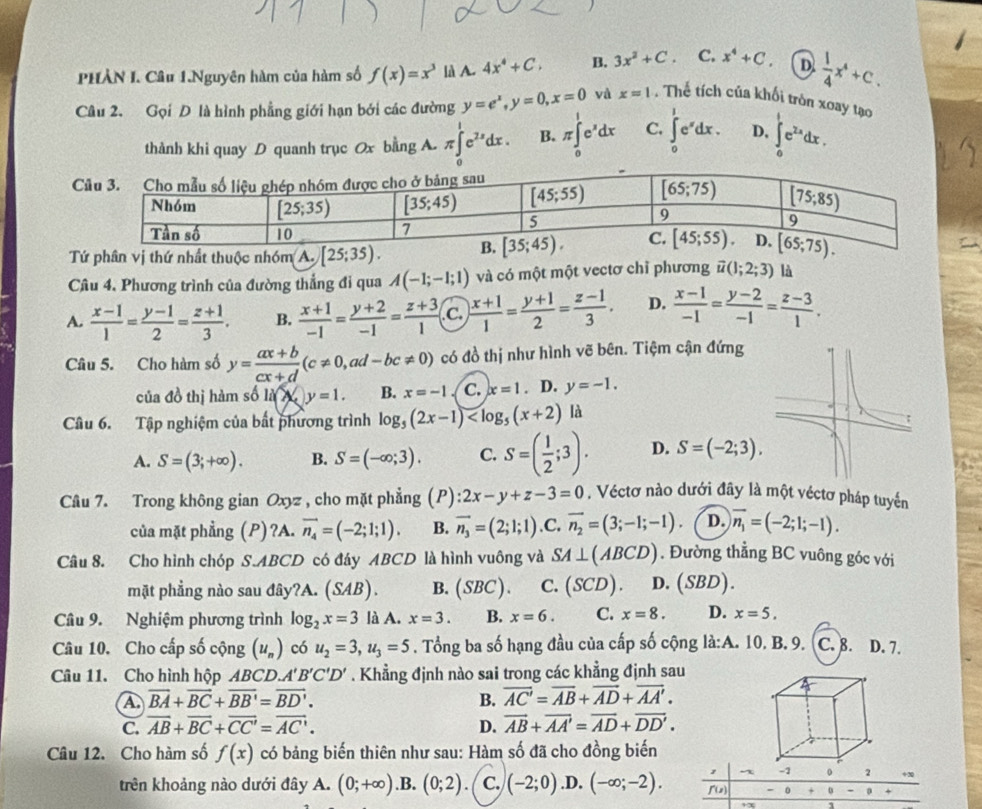 PHẦN I. Câu 1.Nguyên hàm của hàm số f(x)=x³ là A. 4x⁴+C. B. 3x²+C. C. x⁴+C. D. 1/4 x⁴+C.
Câu 2. Gọi D là hình phẳng giới hạn bởi các đường y=eˣ, y=0, x=0 và x=1. Thể tích của khối tròn xoay tạo
thành khi quay D quanh trục Ox bằng A. π∫₀¹e²ˣdx. B. π∫₀¹eˣdx C. ∫₀¹eˣdx. D. ∫₀¹e²ˣdx.
Câu 3. Cho mẫu số liệu ghép nhóm được cho ở bảng sau
Nhóm [25;35) [35;45) [45;55) [65;75) [75;85)
Tần số 10 7 5 9 9
Tứ phân vị thứ nhất thuộc nhóm A. [25;35). B. [35;45). C. [45;55). D. [65;75).
Câu 4. Phương trình của đường thẳng đi qua A(-1;-1;1) và có một một vectơ chỉ phương u⃗(1;2;3) là
A. (x-1)/1=(y-1)/2=(z+1)/3. B. (x+1)/-1=(y+2)/-1=(z+3)/1.C. (x+1)/1=(y+1)/2=(z-1)/3. D. (x-1)/-1=(y-2)/-1=(z-3)/1.
Câu 5. Cho hàm số y=(ax+b)/(cx+d) (c≠0, ad-bc≠0) có đồ thị như hình vẽ bên. Tiệm cận đứng
của đồ thị hàm số là A. y=1. B. x=-1. C. x=1. D. y=-1.
Câu 6. Tập nghiệm của bất phương trình log₅(2x-1)<log₅(x+2) là
A. S=(3;+∞). B. S=(-∞;3). C. S=(1/2;3). D. S=(-2;3).
Câu 7. Trong không gian Oxyz, cho mặt phẳng (P):2x-y+z-3=0. Véctơ nào dưới đây là một véctơ pháp tuyến
của mặt phẳng (P)?A. n₄⃗=(-2;1;1). B. n₃⃗=(2;1;1).C. n₂⃗=(3;-1;-1). D. n₁⃗=(-2;1;-1).
Câu 8. Cho hình chóp S.ABCD có đáy ABCD là hình vuông và SA⊥(ABCD). Đường thẳng BC vuông góc với
mặt phẳng nào sau đây?A. (SAB). B. (SBC). C. (SCD). D. (SBD).
Câu 9. Nghiệm phương trình log₂x=3 là A. x=3. B. x=6. C. x=8. D. x=5.
Câu 10. Cho cấp số cộng (uₙ) có u₂=3, u₃=5. Tổng ba số hạng đầu của cấp số cộng là:A. 10. B. 9. C. 8. D. 7.
Câu 11. Cho hình hộp ABCD.A'B'C'D'. Khẳng định nào sai trong các khẳng định sau
A. BA⃗+BC⃗+BB'⃗=BD'⃗. B. AC'⃗=AB⃗+AD⃗+AA'⃗.
C. AB⃗+BC⃗+CC'⃗=AC'⃗. D. AB⃗+AA'⃗=AD⃗+DD'⃗.
Câu 12. Cho hàm số f(x) có bảng biến thiên như sau: Hàm số đã cho đồng biến
trên khoảng nào dưới đây A. (0;+∞).B. (0;2). C. (-2;0).D. (-∞;-2).
x -∞ -2 0 2 +∞
f'(x) - 0 + 0 - 0 +
+∞ 3